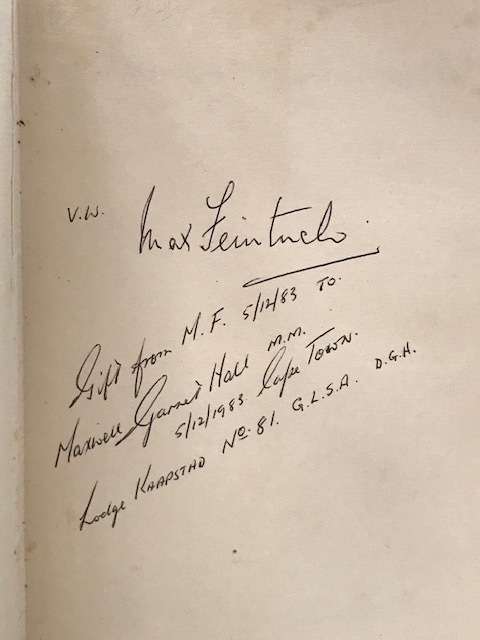 V.W. Max Feintuch.
Gift from M.F. 5/12/83 TO.
Maxwell Garnet Hall M.M.
5/12/1983 Cape Town.
Lodge KAAPSTAD No. 81. G.L.S.A. D.G.H.